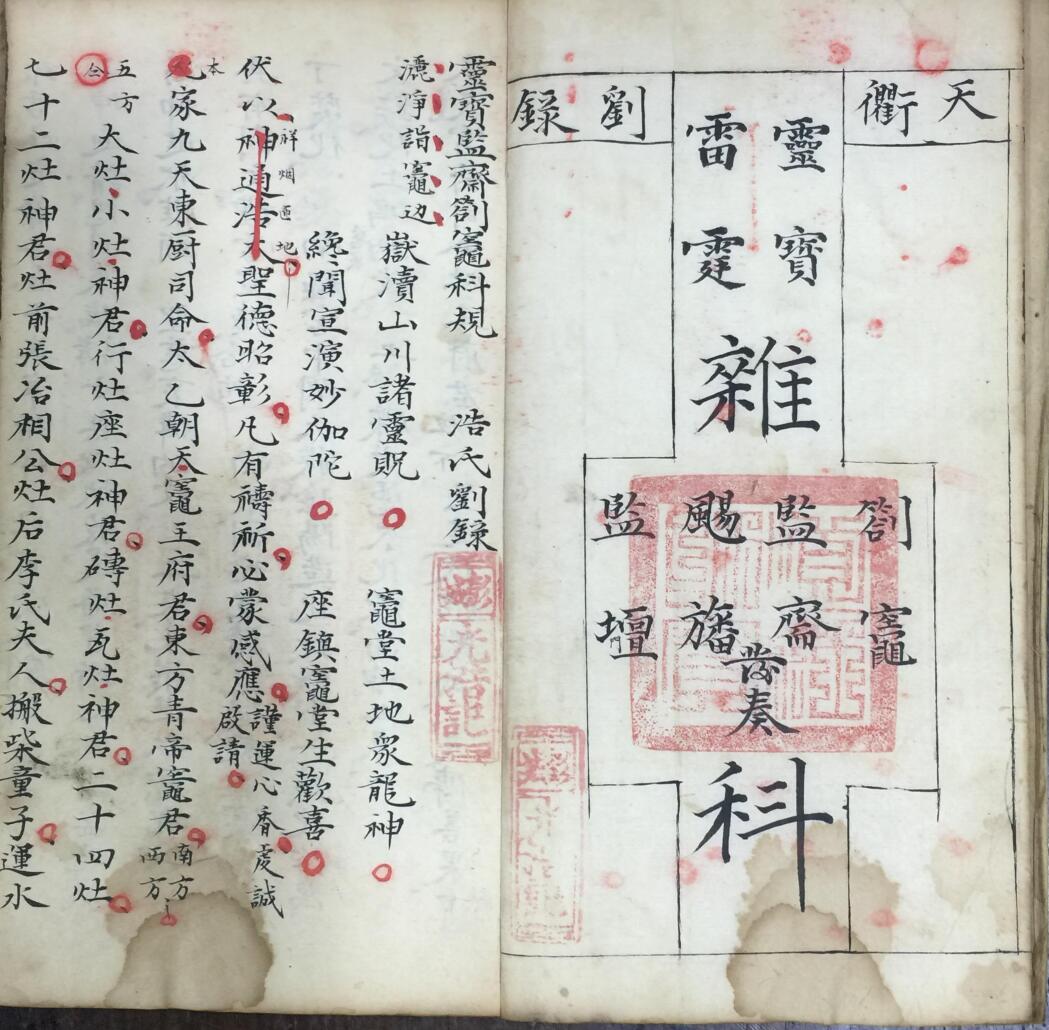 天衢
劉錄
靈寶
雷霆
雜
劄竈
監齋
颺旛
監壇
發奏
科
靈寶監齋劄竈科規 浩氏劉錄
灑淨詣竈边 嶽瀆山川諸靈貺 竈堂土地衆龍神
纔聞宣演妙伽陀 座鎮竈堂生歡喜
祥烟匝地
伏以神通浩大聖德昭彰凡有禱祈必蒙感應謹運心香虔誠啟請
本家九天東厨司命太乙朝天竈王府君東方青帝竈君南方西方
五方大灶小灶神君行灶座灶神君磚灶瓦灶神君二十四灶
七十二灶神君灶前張冶相公灶后李氏夫人搬柴童子運水